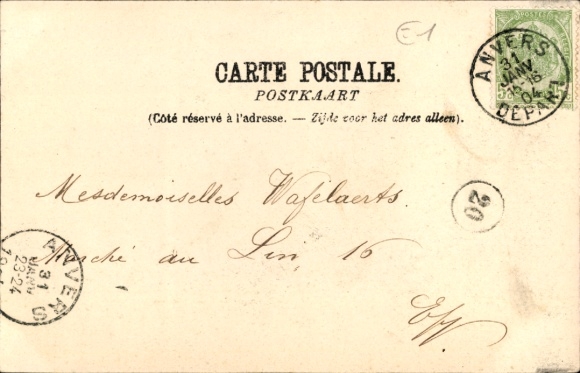 E1
ANVERS
31
JANV
04
DEPART
CARTE POSTALE.
POSTKAART
(Côté réservé à l'adresse. — Zijde voor het adres alleen).
Mesdemoiselles Wafelaerts.
20
Marché au Lin 16
E/V
ANVERS
31
JANV
23-24